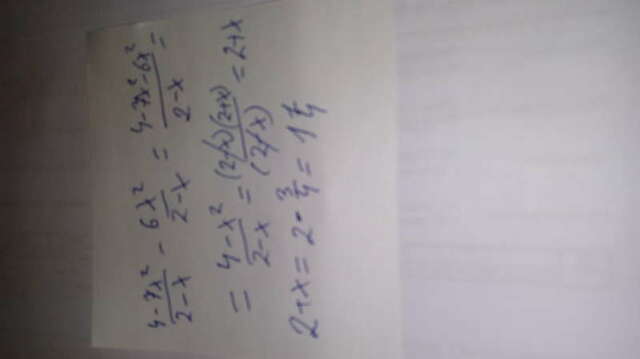 (4-7x²)/(2-x) - 6x²/(2-x) = (4-7x²-6x²)/(2-x) =
= (4-x²)/(2-x) = (2-x)(2+x)/(2-x) = 2+x
2+x = 2 - 3/4 = 1 1/4